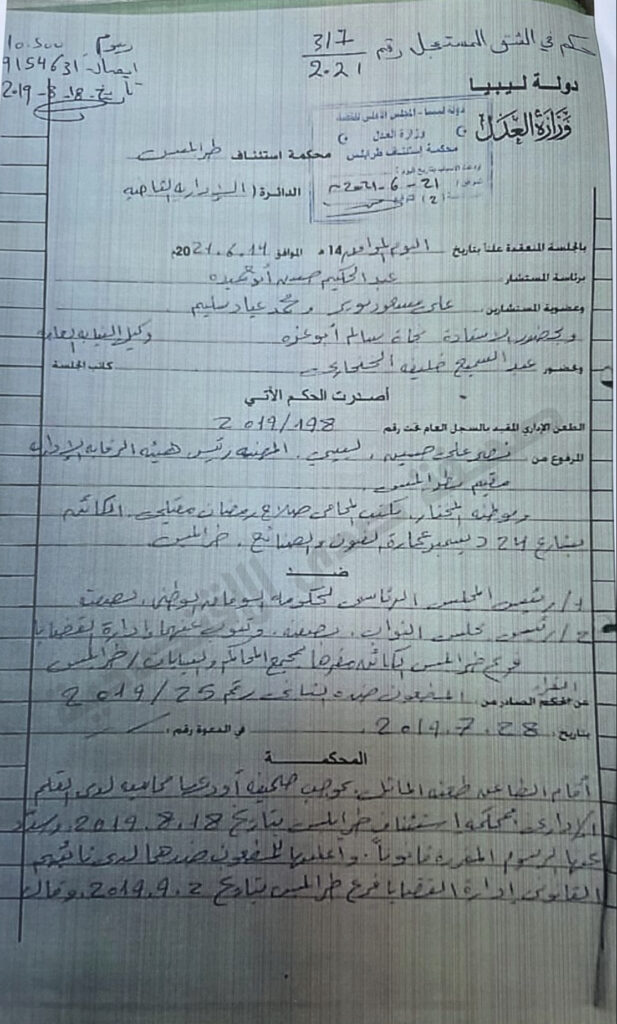 رسوم 10.500
ايصال 9154631
تاريخ 18-8-2019
حكم في الشق المستعجل رقم 317/2021
دولة ليبيا
وزارة العدل
دولة ليبيا - المجلس الأعلى للقضاء
وزارة العدل
محكمة إستئناف طرابلس
21-6-2021
محكمة استئناف طرابلس
الدائرة ( الإدارية القاضية
بالجلسة المنعقدة علناً بتاريخ اليوم الموافق 14هـ الموافق 14.6.2021م
برئاسة المستشار عبد الحكيم حسين أبو حميده
وعضوية المستشارين علي مسعود نوير ومحمد عياد سليم
وبحضور الاستاذة نجاة سالم أبوعزه وكيل النيابة العامة
وحضور عبد السميع خليفة كاتب الجلسة
أصدرت الحكم الآتي
الطعن الإداري المقيد بالسجل العام تحت رقم 198/2019
المرفوع من نصر علي حسين، ليبي. المهنة رئيس هيئة الرقابة الإدارية
مقيم بطرابلس.
وموطنه المختار. مكتب المحامي صلاح رمضان الكائن
بشارع 24 ديسمبر عمارة الفنون والصنائع. طرابلس
ضد
1/ رئيس المجلس الرئاسي لحكومة الوفاق الوطني. بصفته
2/ رئيس مجلس النواب. بصفته. وتنوب عنهما إدارة القضايا
فرع طرابلس الكائن مقرها بمجمع المحاكم والنيابات / طرابلس
القرار
عن الحكم الصادر من المطعون ضده الثاني رقم 25/2019
بتاريخ: 28.7.2019. في الدعوة رقم:
المحكمة
أقام الطاعن طعنه الماثل بموجب صحيفة أودعها محاميه لدى القلم
الإداري بمحكمة استئناف طرابلس بتاريخ 18.8.2019. وسدد
عنها الرسوم المقررة قانوناً. وأعلنها للمطعون ضدهما لدى نائبهم
القانوني إدارة القضايا فرع طرابلس بتاريخ 2.9.2019. وقال